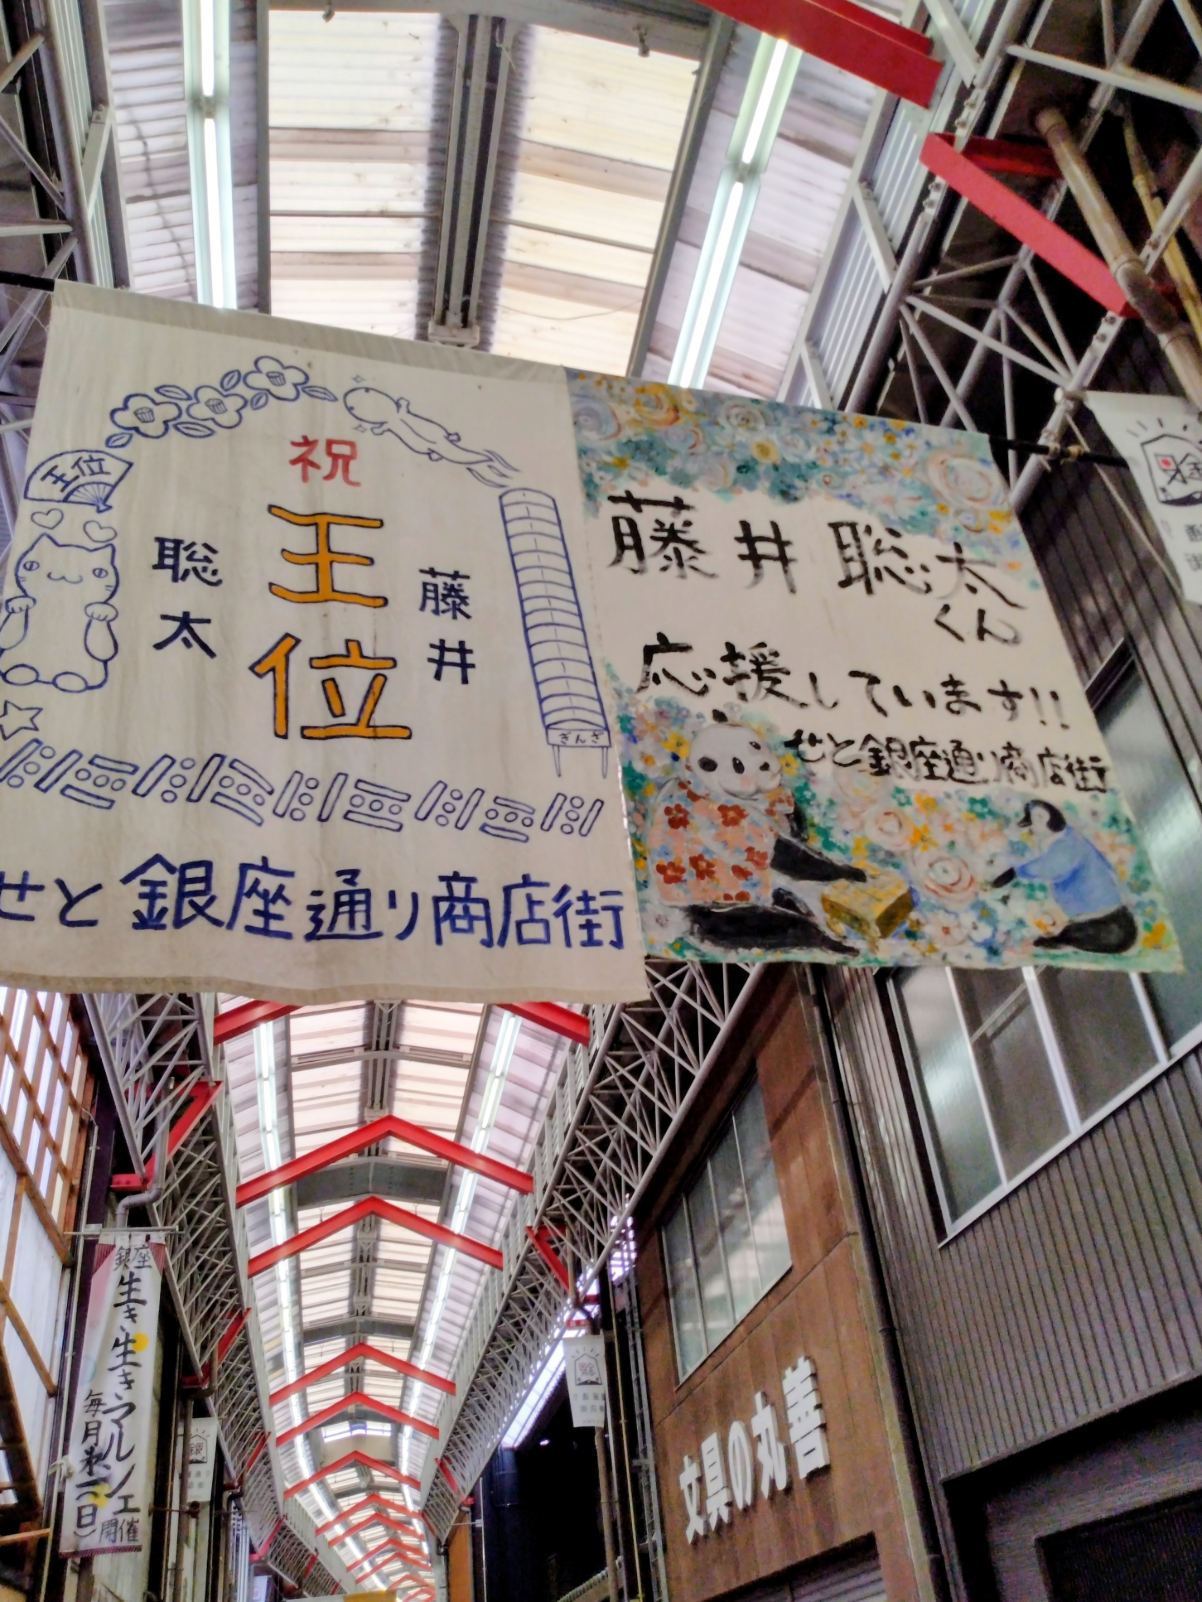 祝
王位
藤井
王位
聡太
ぎんざ
せと銀座通り商店街
藤井聡太
くん
応援しています!!
せと銀座通り商店街
銀座
生き生きマルシェ
開催
文具の丸善